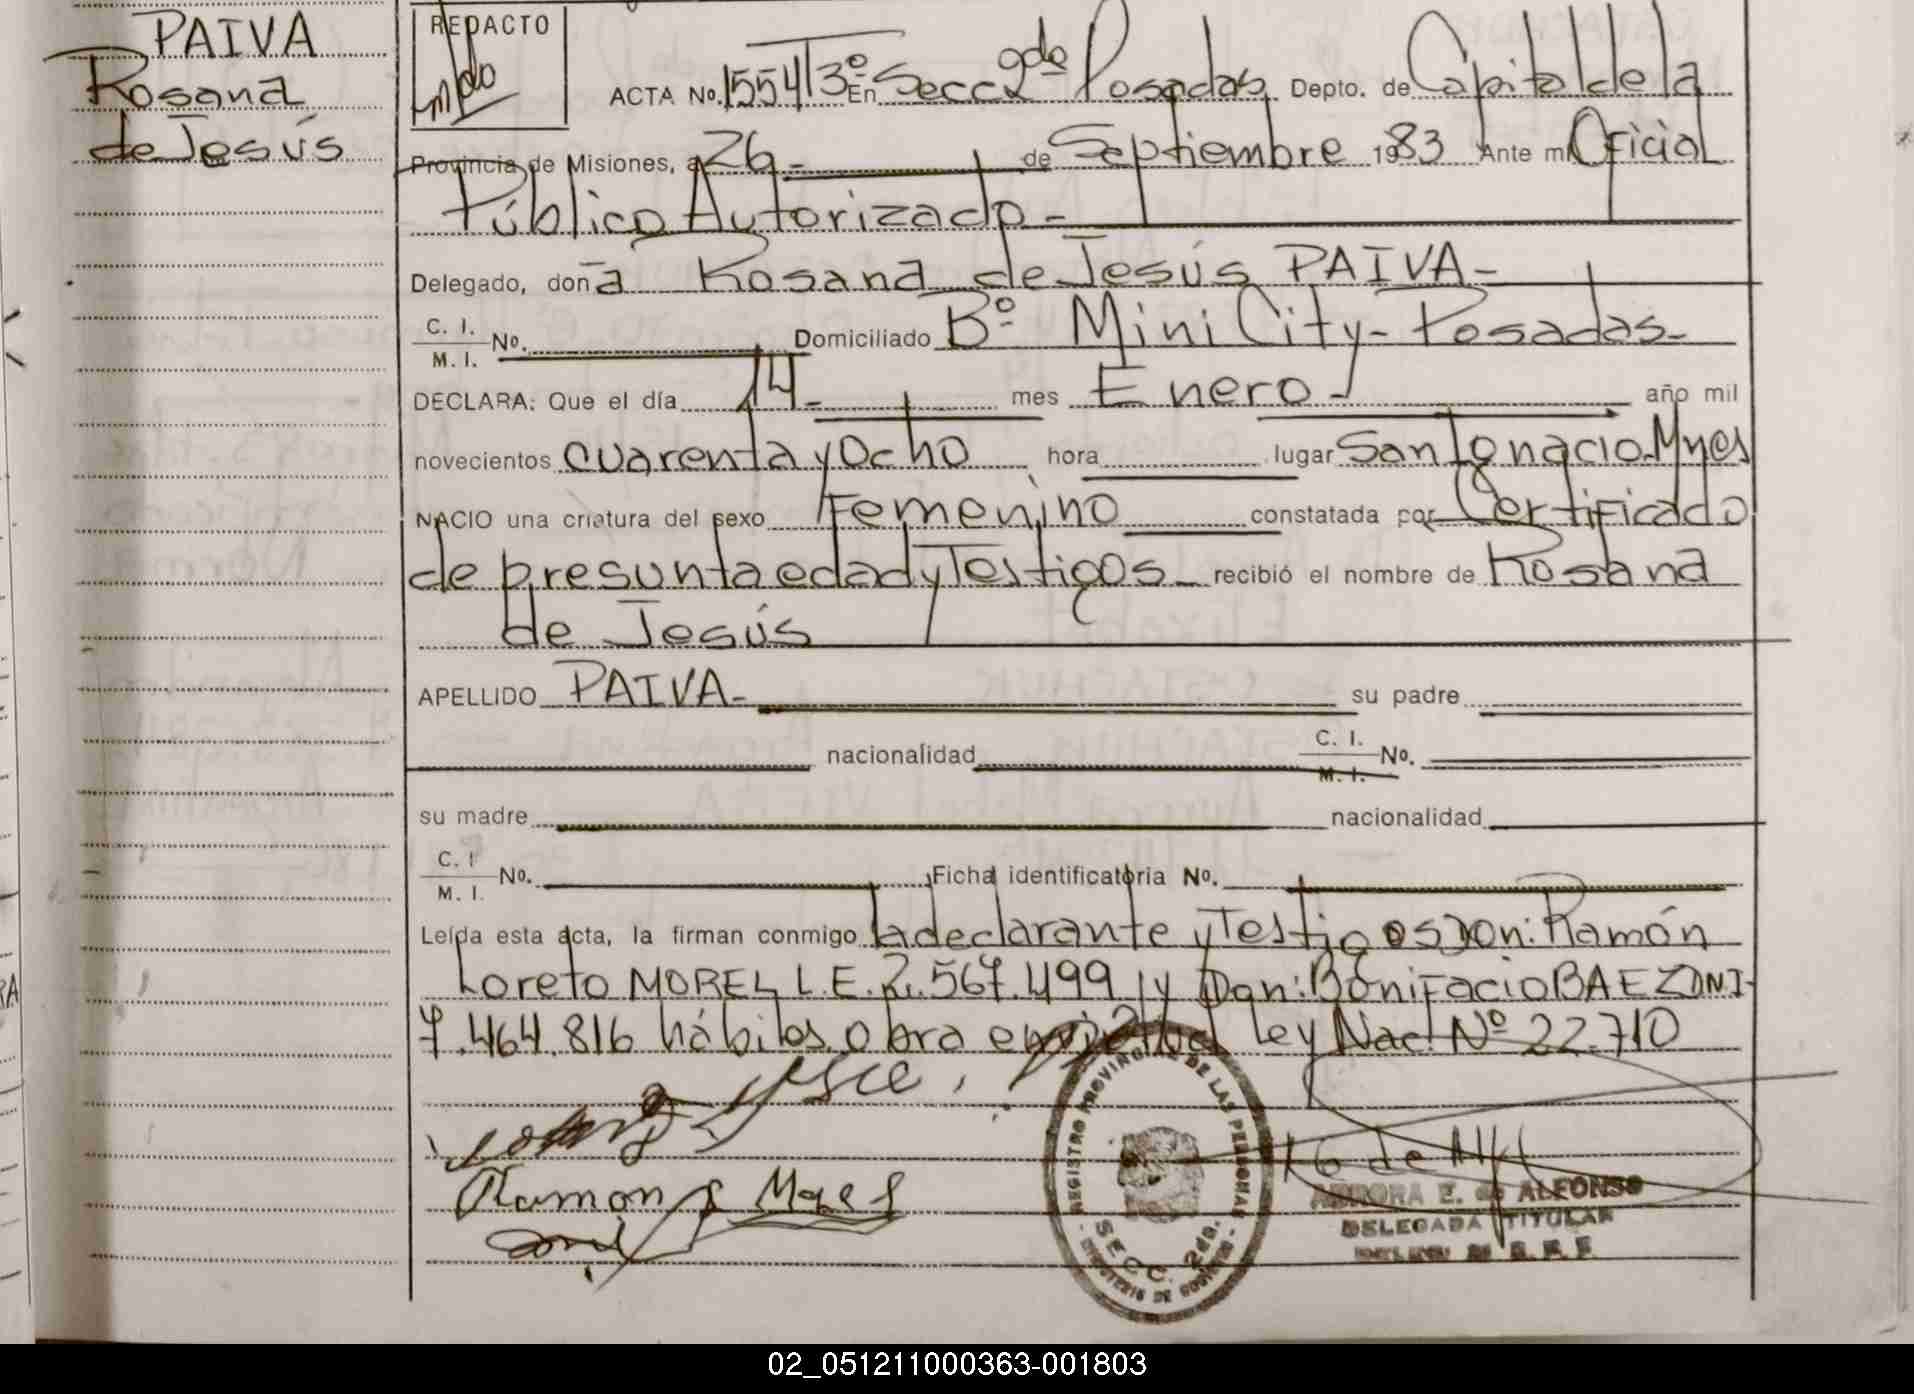 PAIVA
Rosana
de Jesús
REDACTO
ACTA No. 1554 T 3º En Secc 2da Posadas Depto. de Capital de la
Provincia de Misiones, a 26 - de Septiembre 1983 Ante mi Oficial
Público Autorizado -
Delegado, don a Rosana de Jesús PAIVA -
C. I.
M. I. No. Domiciliado Bº Mini City - Posadas -
DECLARA: Que el día 14 - mes Enero - año mil
novecientos cuarenta y Ocho hora lugar San Ignacio Mnes
NACIO una criatura del sexo Femenino constatada por Certificado
de presunta edad y Testigos - recibió el nombre de Rosana
de Jesús
APELLIDO PAIVA - su padre
nacionalidad C. I.
M. I. No.
su madre nacionalidad
C. I
M. I. No. Ficha identificatoria No.
Leída esta acta, la firman conmigo la declarante y Testigos Don: Ramón
Loreto MOREL L.E. 2.567.499 y Don: Bonifacio BAEZ D.N.I
7.464.816 hábiles obra en virtud Ley Nac. Nº 22.710
Ramon L Morel
REGISTRO PROVINCIAL DE LAS PERSONAS
SECC. 2da.
MINISTERIO DE GOBIERNO
AURORA E. de ALFONSO
DELEGADA TITULAR
02_051211000363-001803